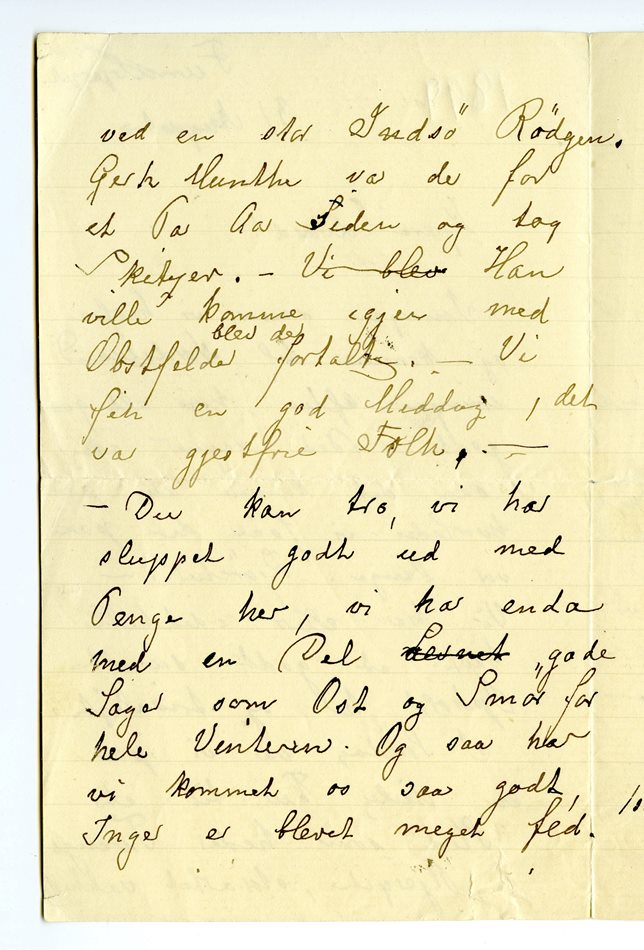 ved en stor Indsö Rödgen.
Gerh Munthe va der for
et Par Aar Siden og tog
Skitser. – Vi blev Han
ville komme igjen med
blev der
Obstfelder fortalt. – Vi
fik en god Middag, det
va gjestfrie Folk. –
– Du kan tro, vi har
sluppet godt ud med
Penge her, vi har enda
med en Del „gode
Sager som Ost og Smör for
hele Vinteren. Og saa har
vi kommet os saa godt,
Inger er blevet meget fed.